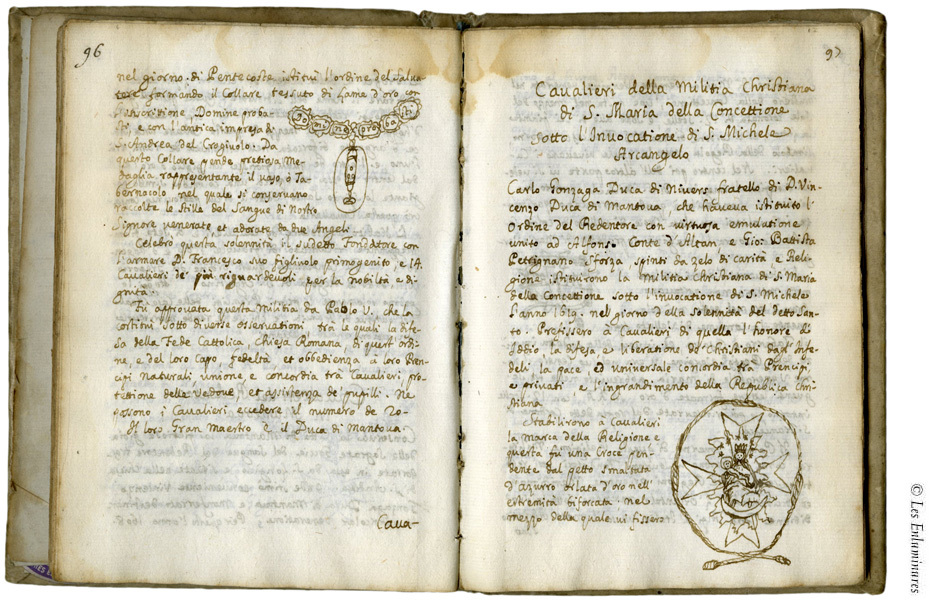 96
nel giorno di Pentecoste istituì l'ordine del Salua-
tore formando il Collare tessuto di Lame d'oro con
l'Inscrittione, Domine proba-
sti, e con l'antica impresa di
S. Andrea del Cregiuolo. Da
questo Collare pende pretiosa Me-
daglia rappresentante il vaso, ò Ta-
bernacolo nel quale si conseruano
raccolte le Stille del Sangue di Nostro
Signore venerate, et adorate da due Angeli.
Celebrò questa solennità il sudetto Fondatore con
l'armare D. Francesco suo figliuolo primogenito, e 14
Cavalieri de' più riguardevoli per la nobiltà e di-
gnità.
Fù approuata questa Militia da Pablo V. che la
costituì sotto diverse osservationi trà le quali la dife-
sa della Fede Cattolica, Chiesa Romana di quest'ordi-
ne, e del loro Capo, fedeltà et obbedienza a loro Pren-
cipi Naturali, unione e concordia trà Cavalieri, pro-
tettione delle Vedove, et assistenza de' pupilli. Ne
possono i Cavalieri eccedere il numero de 20.
Il loro Gran Maestro è il Duca di Mantoua.
Caua-
Do mi ne pro ba sti
97
Cavalieri della Militia Christiana
di S. Maria della Concettione
sotto l'Invocatione di S. Michele
Arcangelo
Carlo Gonzaga Duca di Nivers fratello di D. Vin-
cenzo Duca di Mantova, che haveva istituito l'
Ordine del Redentore con virtuosa emulatione
unito ad Alfonso Conte d'Altan, e Gio: Battista
Petrignano Sforza spinti da zelo di carità e Reli-
gione istituirono la militia Christiana di S. Maria
della Concettione sotto l'invocatione di S. Michele
l'anno 1619. nel giorno della Solennità del detto San-
to. Prefissero à Cavalieri di quella l'honore d'
Iddio, la difesa e liberatione de' Christiani dagl'Infe-
deli, la pace, ed universale concordia trà Prencipi,
e privati, e l'ingrandimento della Republica Chri-
stiana
Stabilirono à Cavalieri
la Marca della Religione e
questa fu una Croce pen-
dente dal petto smaltata
d'azurro orlata d'oro nell'
estremità biforcata nel
mezzo della quale vi fissero
© Les Enluminures